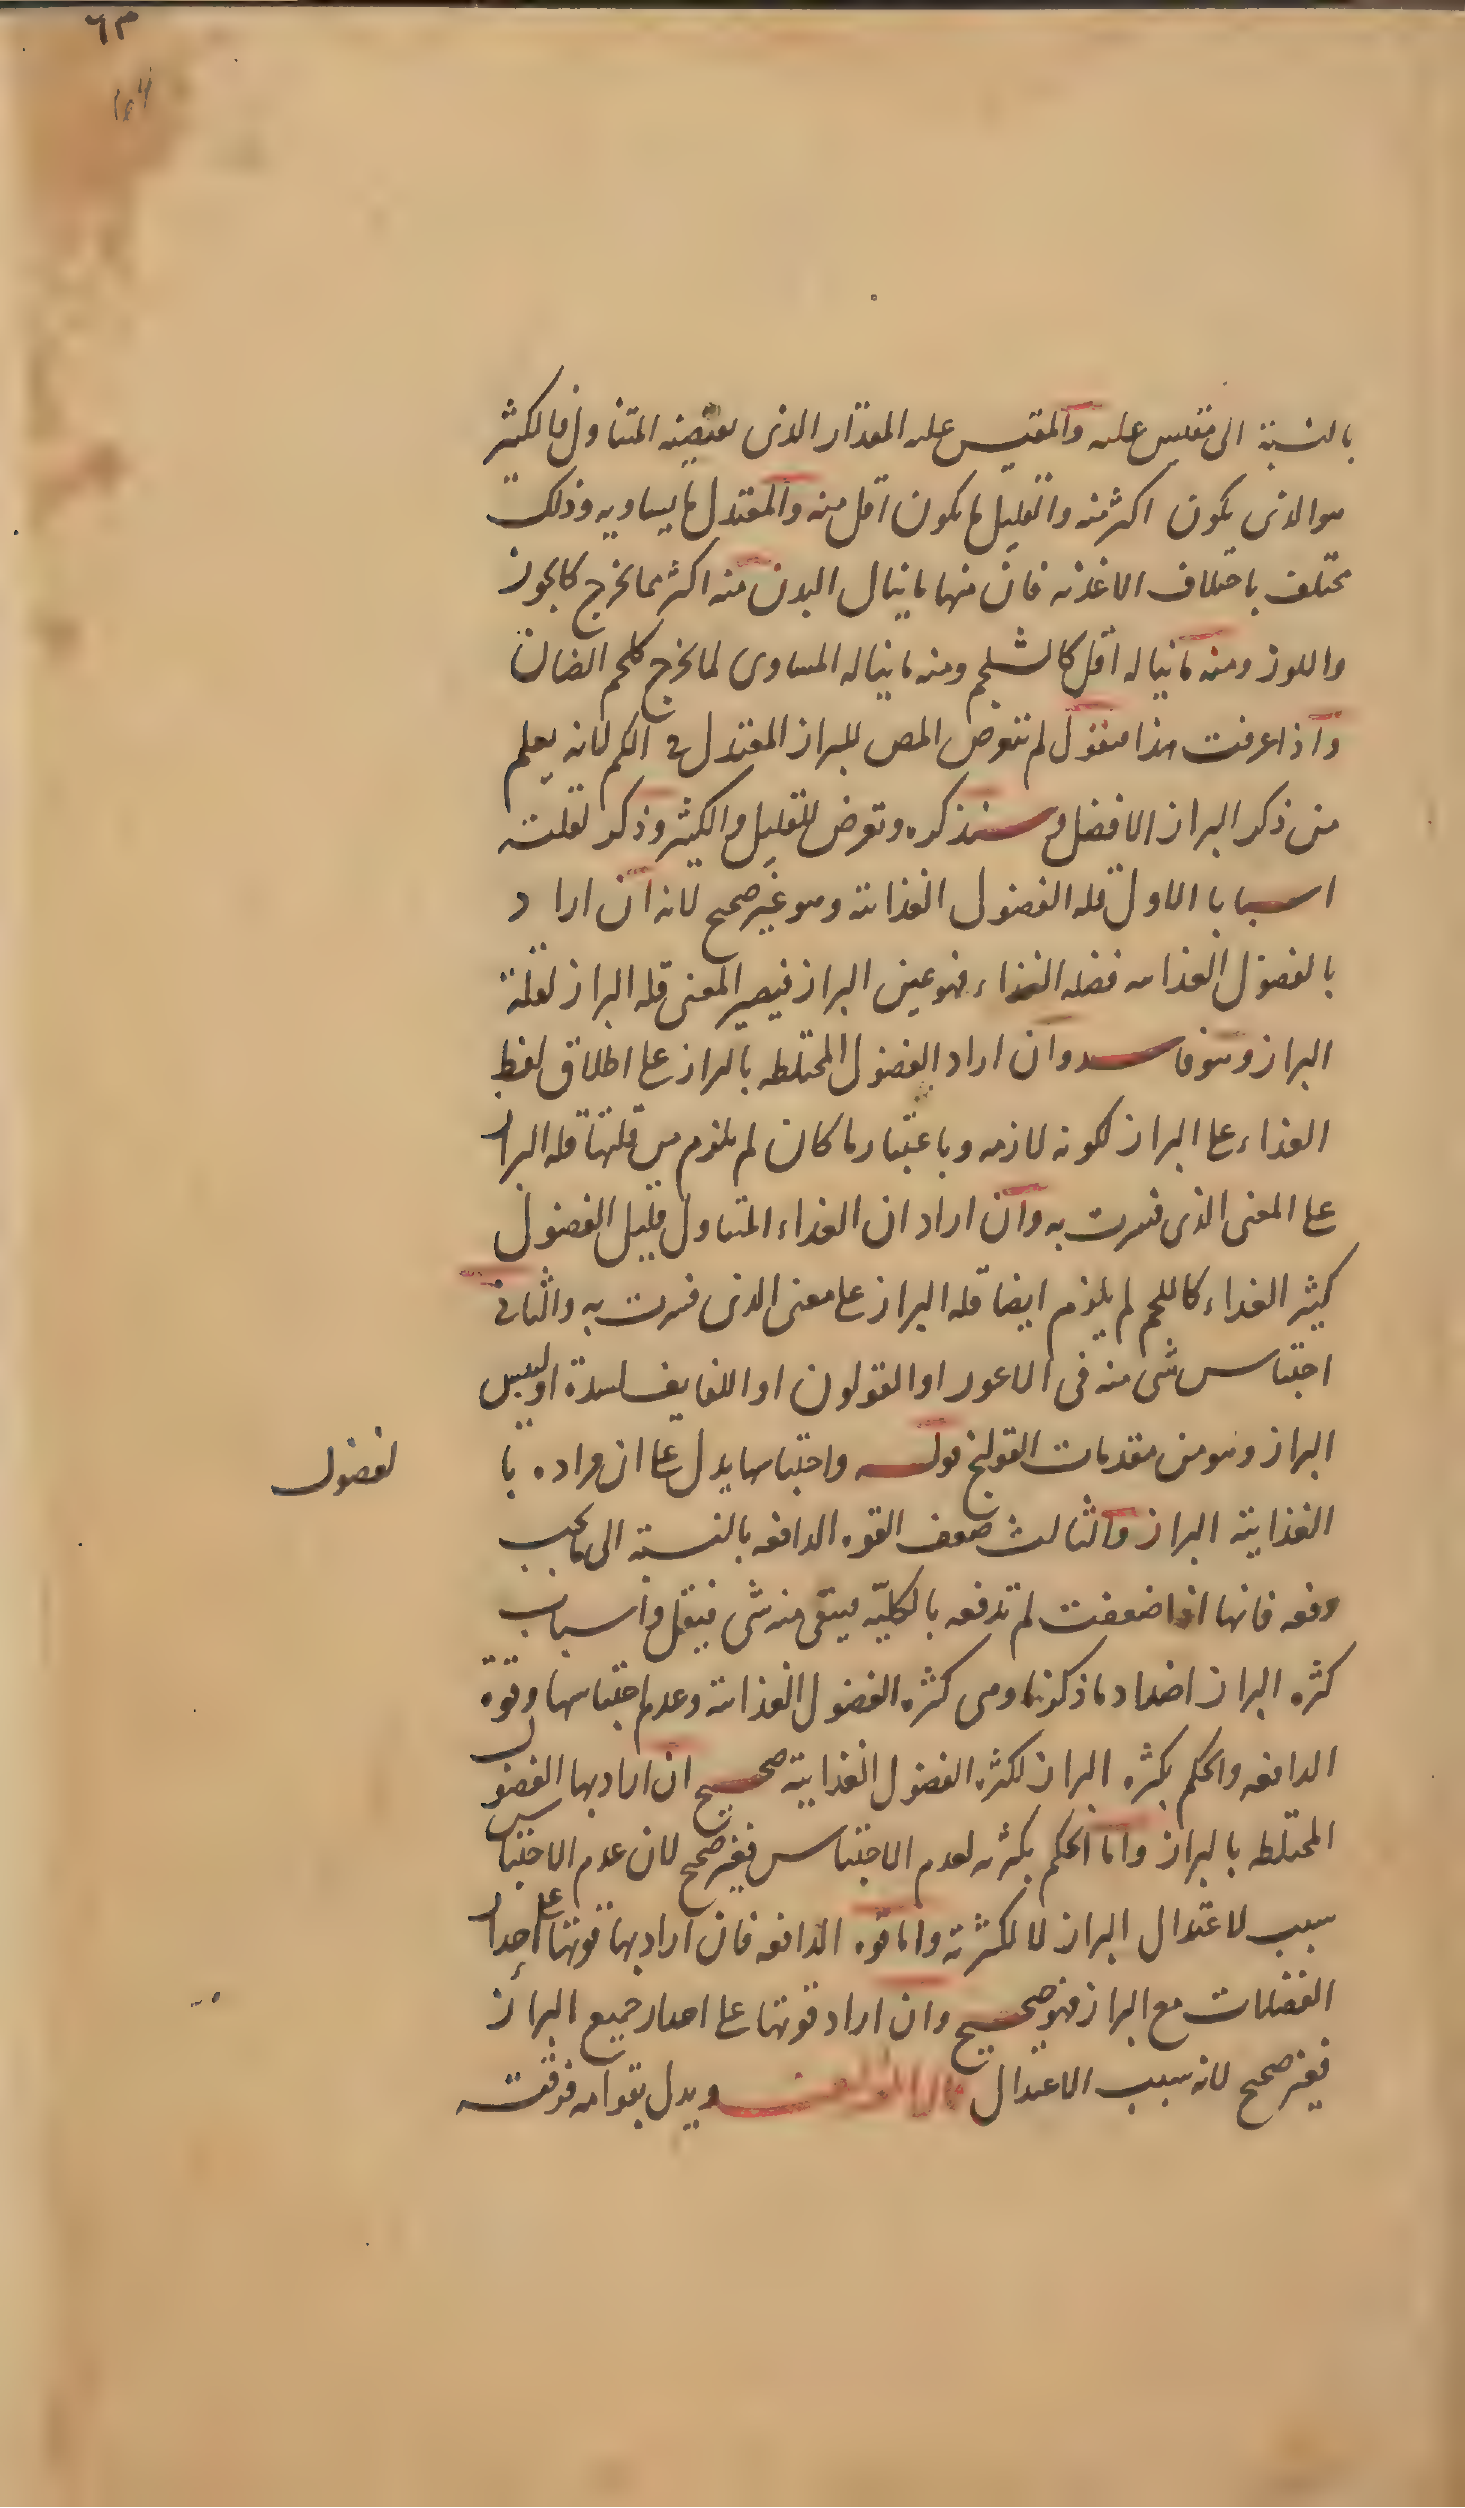 ٦٣
بالنسبة الى مقيس عليه والمقيس عليه المقدار الذى يقتضيه المتناول فالكثير
هو الذى يكون اكثر منه والقليل ما يكون اقل منه والمعتدل ما يساويه وذلك
مختلف باختلاف الاغذية فان منها ما ينال البدن منه اكثر مما يخرج كالجوز
واللوز ومنه ما يناله اقل كالشلجم ومنه ما يناله المساوى لما يخرج كلحم الضان
واذا عرفت هذا فنقول لم يتعرض المص للبراز المعتدل فى الكم لانه يعلم
من ذكر البراز الافضل وسنذكره وتعرض للقليل والكثير وذكر لقلته
اسبابا الاول قله الفضول الغذائية وهو غير صحيح لانه ان اراد
بالفضول الغذاىيه فضله الغذاء فهو عين البراز فيصير المعنى قله البراز لقلة
البراز وهو فاسد وان اراد الفضول المختلطه بالبراز على اطلاق لفظ
الغذاء على البراز لكونه لازمه وباعتبار ما كان لم يلزم من قلتها قله البراز
على المعنى الذى فسرت به وان اراد ان الغذاء المتناول قليل الفضول
كثير الغذاء كاللحم لم يلزم ايضا قله البراز على معنى الذى فسرت به والثانى
احتباس شى منه فى الاعور او القولون او اللفايف لسدة او ليبس
البراز وهو من مقدمات القولنج قوله واحتباسها يدل على ان مراده با
لفضول
الغذايية البراز والثالث ضعف القوه الدافعه بالنسبة الى ما يجب
دفعه فانها اذا ضعفت لم تدفعه بالكليّه فيبقى منه شى فيقل واسباب
كثره البراز اضداد ما ذكرنا وهى كثره الفضول الغذائية وعدم احتباسها وقوة
الدافعه والحكم بكثره البراز لكثره الفضول الغذايية صحيح ان اراد بها الفضول
المختلطه بالبراز واما الحكم بكثرته لعدم الاحتباس فغير صحيح لان عدم الاحتباس
سبب لاعتدال البراز لا لكثرته واما قوه الدافعه فان اراد بها قوتها على احدار
الفضلات مع البراز فهو صحيح وان اراد قوتها على احدار جميع البراز
فغير صحيح لانه سبب الاعتدال قال المولف ويدل بقوامه فرقته